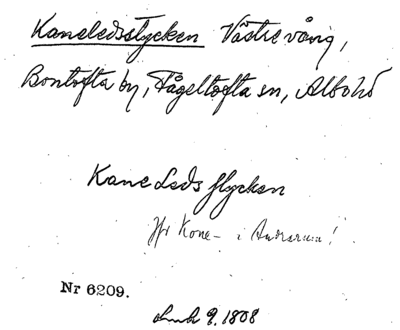 Kaneledsstycken Västre vång,
Bontofta by, Fågeltofta sn, Albo hd
Kane Leds stycken
Jfr Kone- i Andrarum!
Nr 6209.
9. 1808